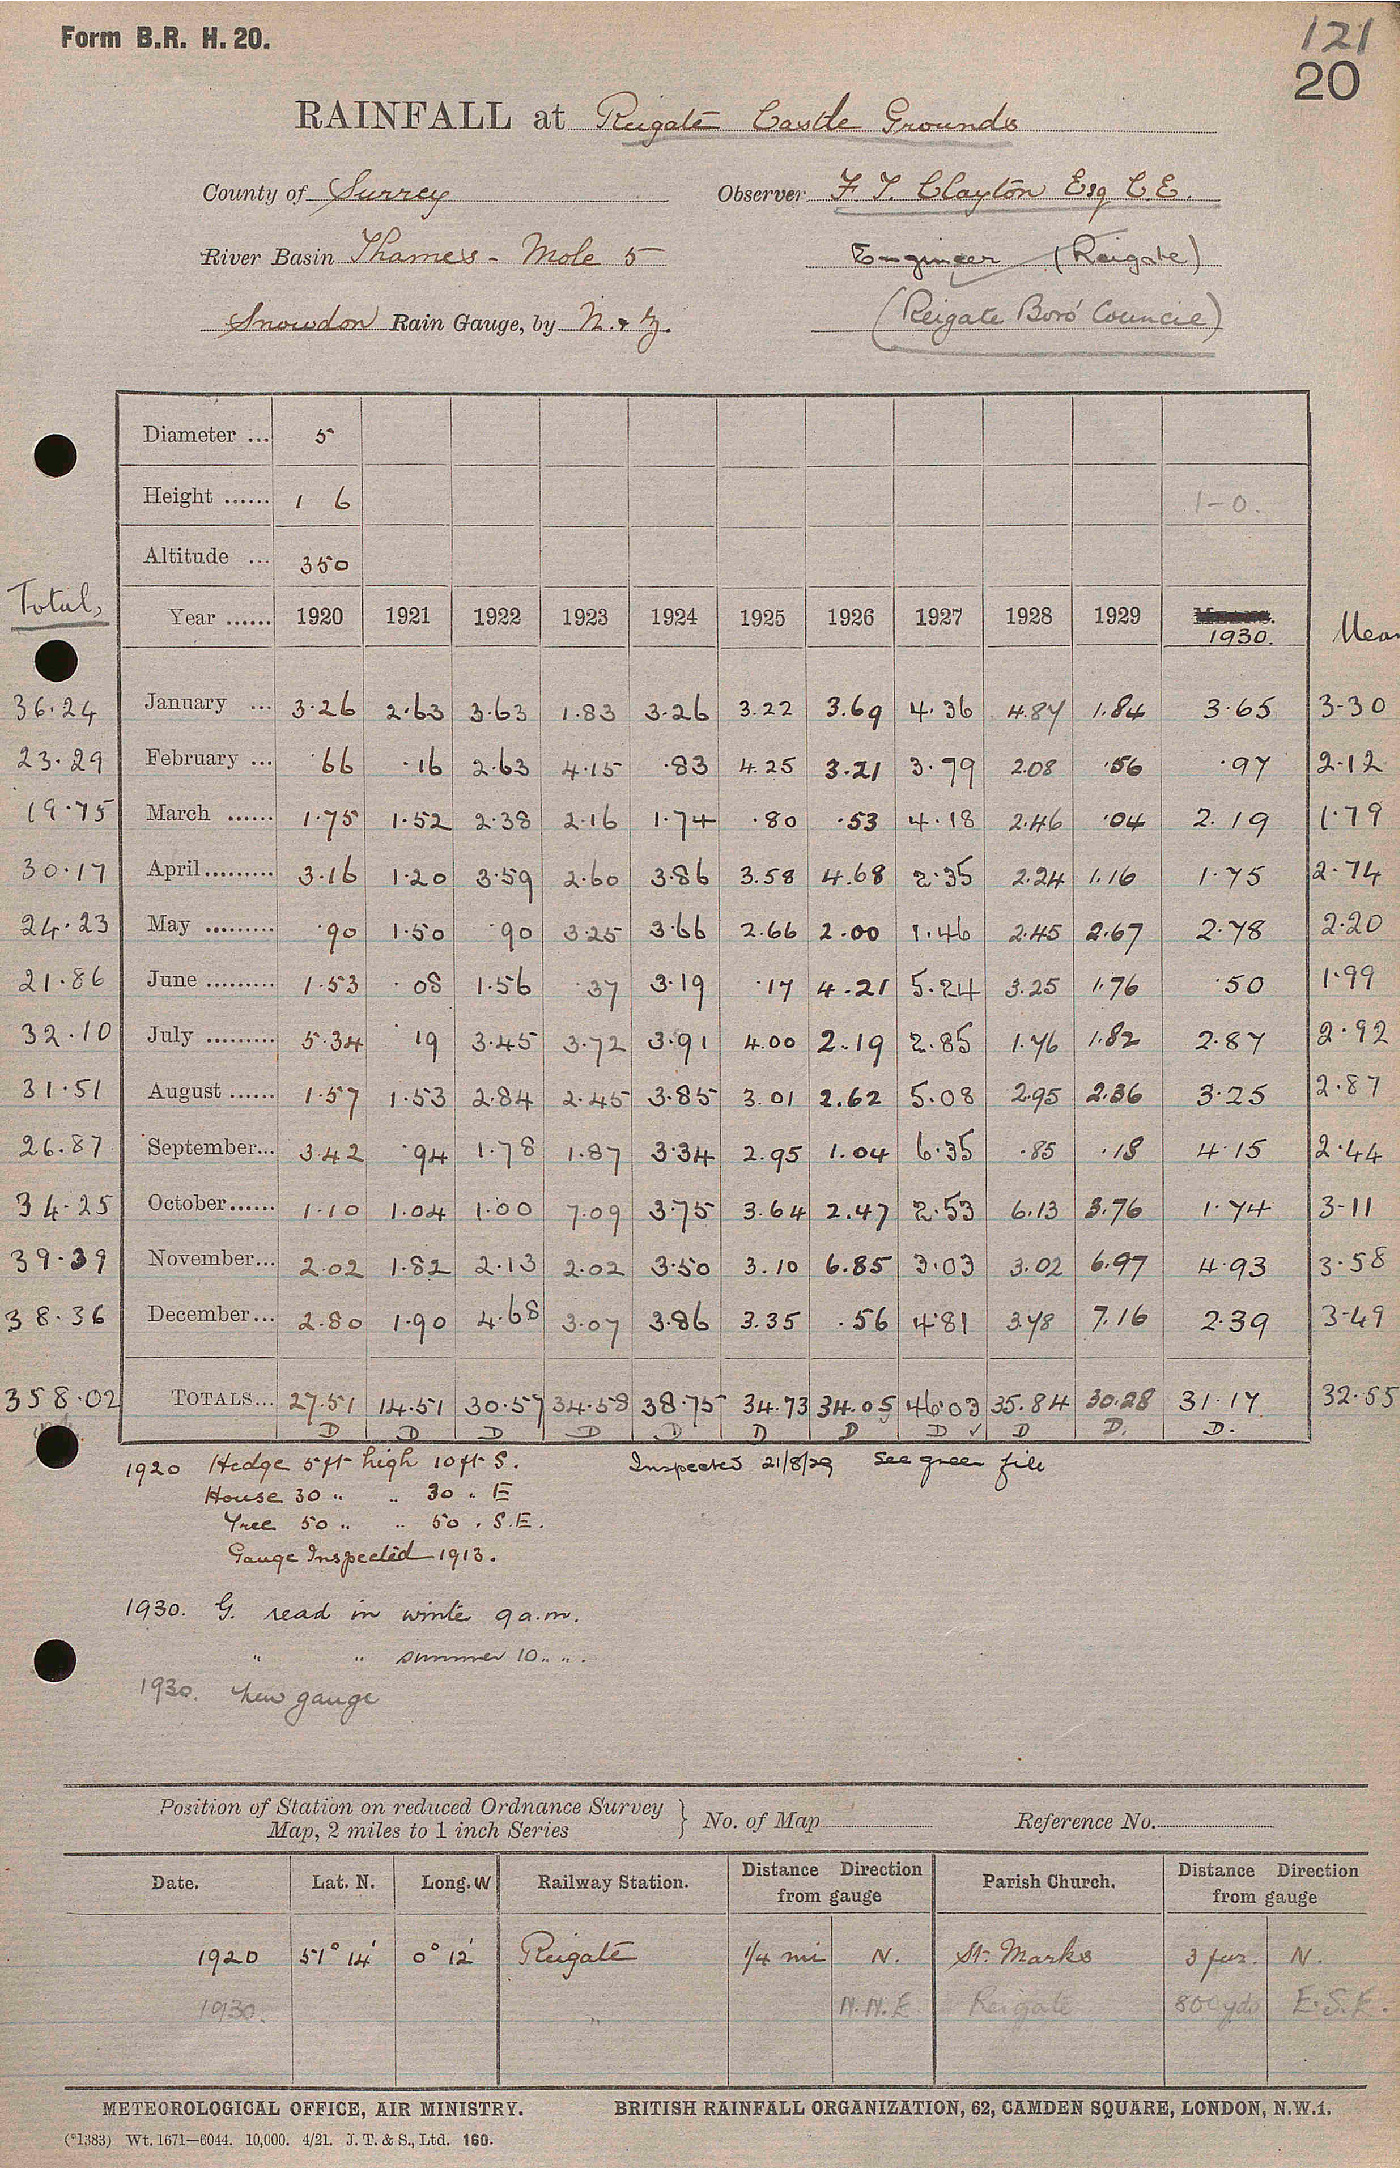 Form B.R. H. 20.
121
20
RAINFALL at Reigate Castle Grounds
County of Surrey Observer F. T. Clayton Esq C.E.
River Basin Thames - Mole 5 Engineer (Reigate)
Snowdon Rain Gauge, by N. & Z. (Reigate Boro' Council)
Diameter ... 5
Height ...... 1 6 1-0.
Altitude ... 350
Total, Year ...... 1920 1921 1922 1923 1924 1925 1926 1927 1928 1929 1930. Mean
36.24 January ... 3.26 2.63 3.63 1.83 3.26 3.22 3.69 4.36 4.87 1.84 3.65 3.30
23.29 February ... .66 .16 2.63 4.15 .83 4.25 3.21 3.79 2.08 .56 .97 2.12
19.75 March ...... 1.75 1.52 2.38 2.16 1.74 .80 .53 4.18 2.46 .04 2.19 1.79
30.17 April ......... 3.16 1.20 3.59 2.60 3.86 3.58 4.68 2.35 2.24 1.16 1.75 2.74
24.23 May ......... .90 1.50 .90 3.25 3.66 2.66 2.00 1.46 2.45 2.67 2.78 2.20
21.86 June ......... 1.53 .08 1.56 .37 3.19 .17 4.21 5.24 3.25 1.76 .50 1.99
32.10 July ......... 5.34 .19 3.45 3.72 3.91 4.00 2.19 2.85 1.76 1.82 2.87 2.92
31.51 August ...... 1.57 1.53 2.84 2.45 3.85 3.01 2.62 5.08 2.95 2.36 3.25 2.87
26.87 September... 3.42 .94 1.78 1.87 3.34 2.95 1.04 6.35 .85 .18 4.15 2.44
34.25 October...... 1.10 1.04 1.00 7.09 3.75 3.64 2.47 2.53 6.13 3.76 1.74 3.11
39.39 November... 2.02 1.82 2.13 2.02 3.50 3.10 6.85 3.03 3.02 6.97 4.93 3.58
38.36 December... 2.80 1.90 4.68 3.07 3.86 3.35 .56 4.81 3.78 7.16 2.39 3.49
358.02 TOTALS... 27.51 14.51 30.57 34.58 38.75 34.73 34.05 46.03 35.84 30.28 31.17 32.55
D D D D D D D D ✓ D D. D.
1920 Hedge 5ft high 10ft S. Inspected 21/8/29 See green file
House 30 " " 30 " E
Tree 50 " " 50 " S.E.
Gauge Inspected 1913.
1930. G. read in winter 9 a.m.
" " summer 10 " " .
1930. New gauge
Position of Station on reduced Ordnance Survey
Map, 2 miles to 1 inch Series } No. of Map Reference No.
Date. Lat. N. Long. W Railway Station. Distance Direction from gauge Parish Church. Distance Direction from gauge
1920 51° 14' 0° 12' Reigate 1/4 mi N. St. Marks 3 fur. N.
1930. " N.N.E Reigate 800 yds E.S.E.
METEOROLOGICAL OFFICE, AIR MINISTRY. BRITISH RAINFALL ORGANIZATION, 62, CAMDEN SQUARE, LONDON, N.W.1.
(*1383) Wt. 1671—6044. 10,000. 4/21. J. T. & S., Ltd. 160.